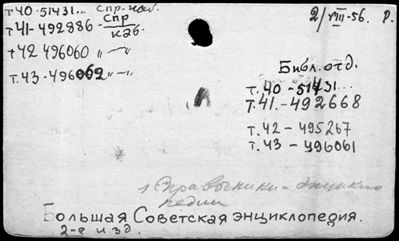 т40-51431... спр. каб. 2/VIII-56. Р.
т41-492986 - спр каб.
т42 496060 " — "
т.43-496062 " — "
Библ. отд.
т.40-51431...
т.41.-492668
т.42-495267
т.43-496061
Справочники - энцикло
педии
Большая Советская энциклопедия.
2-е изд.